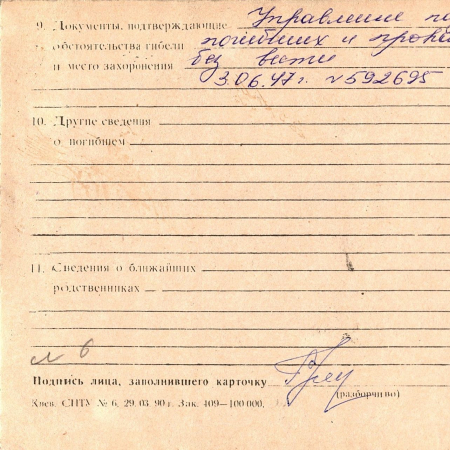 9. Документы, подтверждающие Управление по
обстоятельства гибели погибших и пропа
и место захоронения без вести
3.06.47 г. №592695
10. Другие сведения
о погибшем
11. Сведения о ближайших
родственниках
л 6
Подпись лица, заполнившего карточку
(разборчиво)
Киев. СПТУ № 6, 29. 03. 90 г. Зак. 409—100 000.